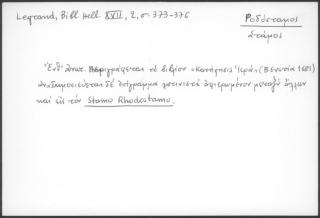 Legrand, Bibl Hell XVII, 2, σ. 373-376
Ροδόσταμος
Στάμος
"Ενθ' ἀνωτ. περιγράφεται τὸ βιβλίον «Κατήχησις Ἱερά» (Βενετία 1681)
ἀναδημοσιεύεται δὲ ἐπίγραμμα λατινιστὶ ἀφιερωμένον μεταξὺ ἄλλων
καὶ εἰς τὸν Stamo Rhodostamo.